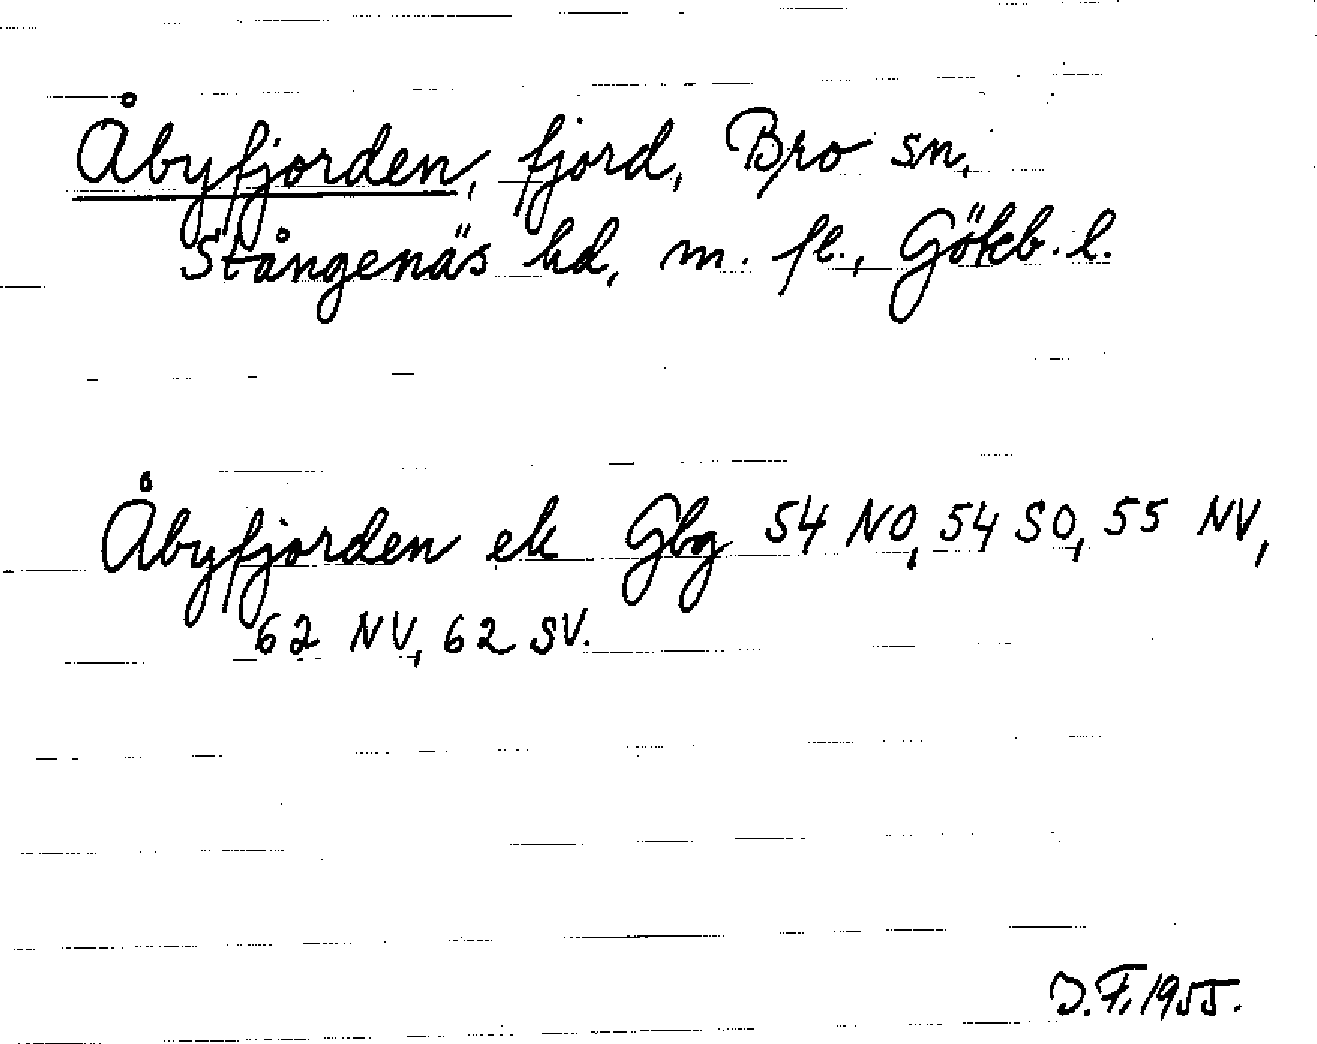 Åbyfjorden, fjord, Bro sn,
Stångenäs hd, m. fl., Göteb. l.
Åbyfjorden ek Gbg 54 NO, 54 SO, 55 NV,
62 NV, 62 SV.
D.F. 1955.